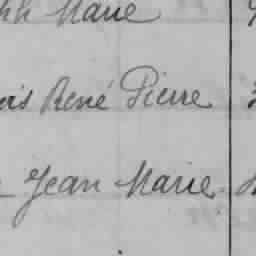 Marie
René Pierre
Jean Marie